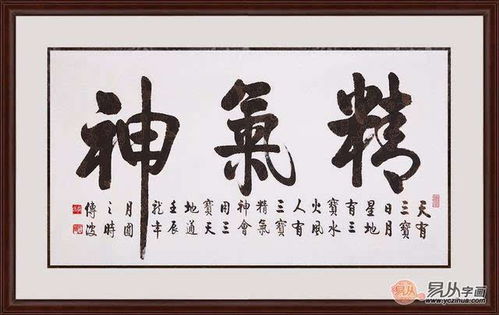 精氣神
天有
三寶
日月
星地
有三
寶水
火風
人有
三寶
精氣
神會
用三
寶天
地通
壬辰
龍年
月圓
之時
傅波
易从字画
www.yczihua.com